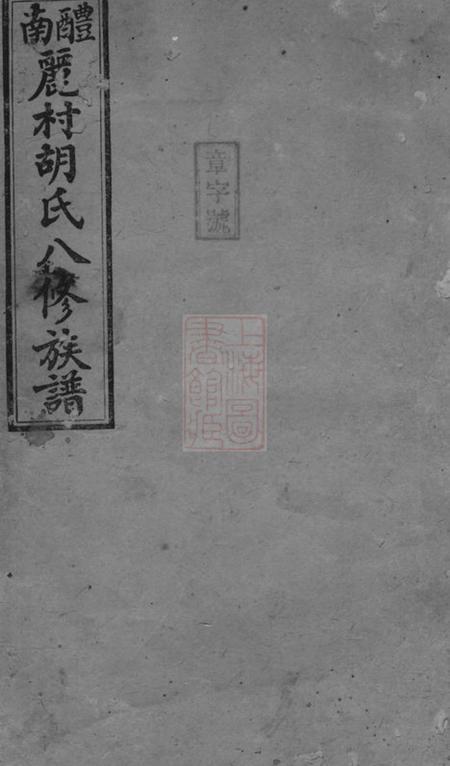 醴南
麗村胡氏八修族譜
章字號
上海圖
書館藏